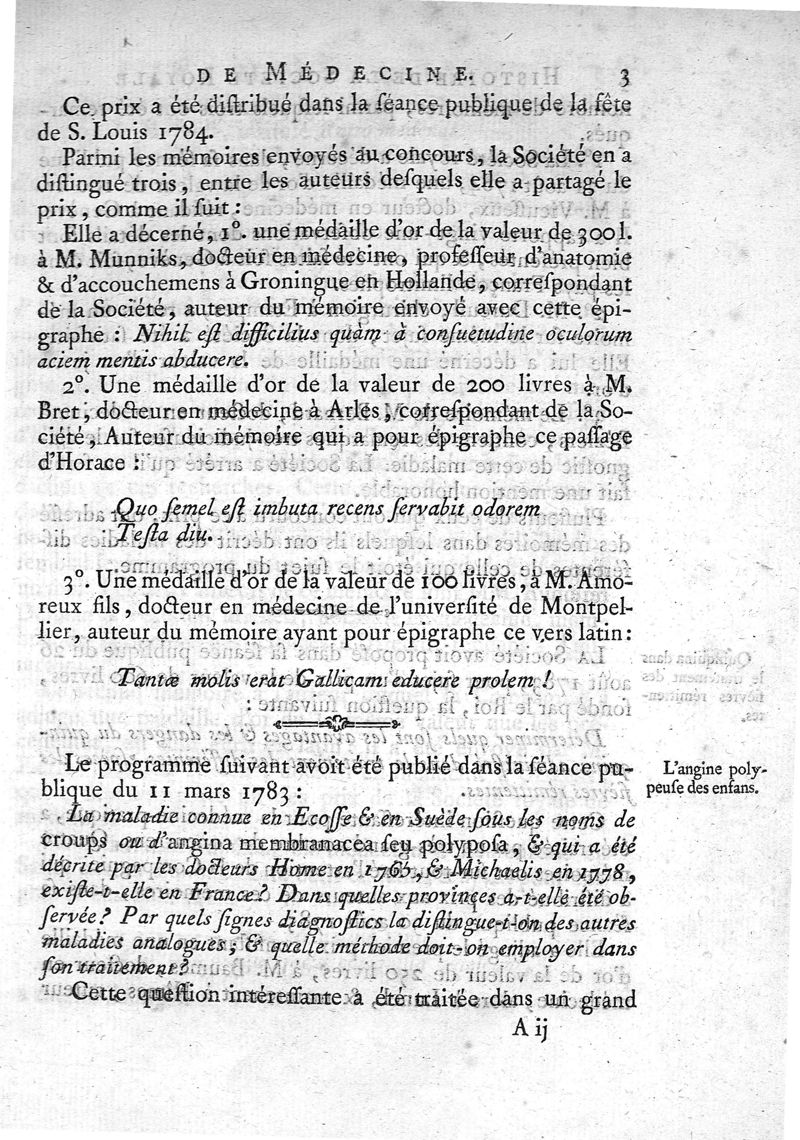 DE MÉDECINE. 3
Ce prix a été diſtribué dans la ſéance publique de la fête
de S. Louis 1784.
Parmi les mémoires envoyés au concours, la Société en a
diſtingué trois, entre les auteurs deſquels elle a partagé le
prix, comme il ſuit :
Elle a décerné, 1°. une médaille d'or de la valeur de 300 l.
à M. Munniks, docteur en médecine, profeſſeur d'anatomie
& d'accouchemens à Groningue en Hollande, correſpondant
de la Société, auteur du mémoire envoyé avec cette épi-
graphe : Nihil eſt difficilius quàm à conſuetudine oculorum
aciem mentis abducere.
2°. Une médaille d'or de la valeur de 200 livres à M.
Bret, docteur en médecine à Arles, correſpondant de la So-
ciété, Auteur du mémoire qui a pour épigraphe ce paſſage
d'Horace :
Quo ſemel eſt imbuta recens ſervabit odorem
Teſta diu.
3°. Une médaille d'or de la valeur de 100 livres, à M. Amo-
reux fils, docteur en médecine de l'univerſité de Montpel-
lier, auteur du mémoire ayant pour épigraphe ce vers latin :
Tantæ molis erat Gallicam educere prolem !
Le programme ſuivant avoit été publié dans la ſéance pu-
blique du 11 mars 1783 :
L'angine poly-
peuſe des enfans.
La maladie connue en Ecoſſe & en Suède ſous les noms de
croups ou d'angina membranacea ſeu polypoſa, & qui a été
décrite par les docteurs Home en 1765, & Michaelis en 1778,
exiſte-t-elle en France? Dans quelles provinces a-t-elle été ob-
ſervée? Par quels ſignes diagnoſtics la diſtingue-t-on des autres
maladies analogues; & quelle méthode doit-on employer dans
ſon traitement?
Cette queſtion intéreſſante a été traitée dans un grand
A ij